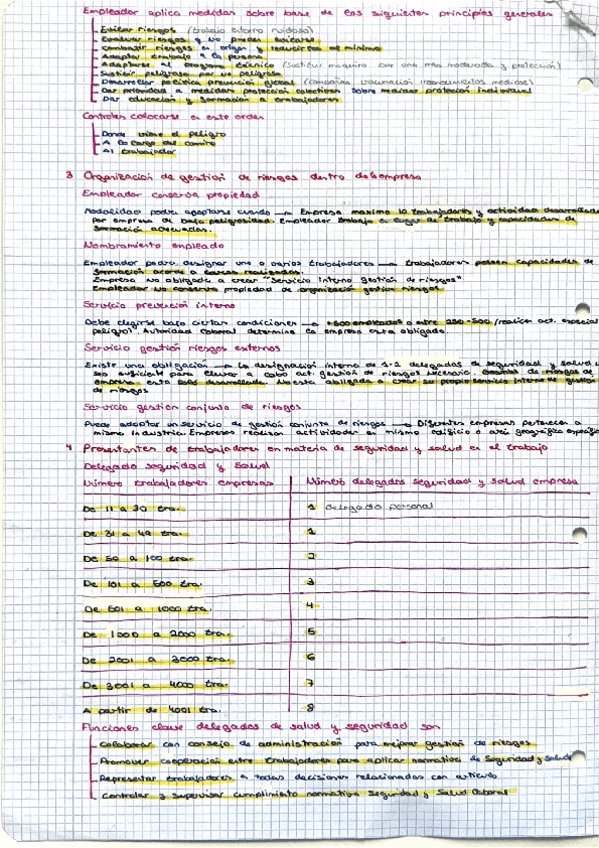 Empleador aplica medidas sobre base de los siguientes principios generales
Evitar riesgos (trabajo ruidoso)
Evaluar riesgos q no puedan evitarse
Combatir riesgos en origen y reducirlos al mínimo
Adaptar trabajo a la persona
Adaptarse al progreso técnico (sustituir maquina por una mas moderada y protección)
Sustituir peligroso por no peligroso
Desarrollar política prevención global (campañas vacunación medidas)
Dar prioridad a medidas protección colectivas sobre medidas protección individual
Dar educación y formación a trabajadores
Controles colocarse en este orden
Donde viene el peligro
A lo largo del camino
Al trabajador
3 Organización de gestión de riesgos dentro de la empresa
Empleador conserva propiedad
Modalidad podra adoptarse cuando → Empresa maximo 10 trabajadores y actividad desarrollada
por empresa de baja peligrosidad. Empleador trabaja en lugar de trabajo y capacidades de
formación adecuadas.
Nombramiento empleado
Empleador podra designar uno o varios trabajadores → trabajadores poseen capacidades de
formación acorde a tareas realizadas.
Empresa no obligada a crear "Servicio interno gestión de riesgos"
Empleador no conserva propiedad de organización gestión riesgos
Servicio prevención interno
Debe elegirse bajo ciertas condiciones → +500 empleados o entre 250-500 /realicen act. especial
peligro". Autoridad laboral determine la empresa esta obligada.
Servicio gestión riesgos externos
Existe una obligación → La designación interna de 1-2 delegados de seguridad y salud
sea suficiente para llevar a cabo act gestión de riesgos necesario. Gestión de riesgos de
empresa esta desarrollada. No esta obligada a crear su propio servicio interno de gestión
de riesgos
Servicio gestion conjunto de riesgos
Puede adoptar un servicio de gestión conjunta de riesgos → Diferentes empresas pertenecen a
misma industria. Empresas realizan actividades en mismo edificio o area geográfica especifica
4 Presentantes de trabajadores en materia de seguridad y salud en el trabajo
Delegado seguridad y salud
Número trabajadores empresas Número delegados seguridad y salud empresa
De 11 a 30 tra. 1 delegado personal
De 31 a 49 tra. 1
De 50 a 100 tra. 2
De 101 a 500 tra. 3
De 501 a 1000 tra. 4
De 1000 a 2000 tra. 5
De 2001 a 3000 tra. 6
De 3001 a 4000 tra. 7
A partir de 4001 tra. 8
Funciones clave delegados de salud y seguridad son
Colaborar con consejo de administración para mejorar gestión de riesgos
Promover cooperación entre trabajadores para aplicar normativa de Seguridad y Salud
Representar trabajadores a todas decisiones relacionadas con artículo
Controlar y supervisar cumplimiento normativa Seguridad y Salud laboral